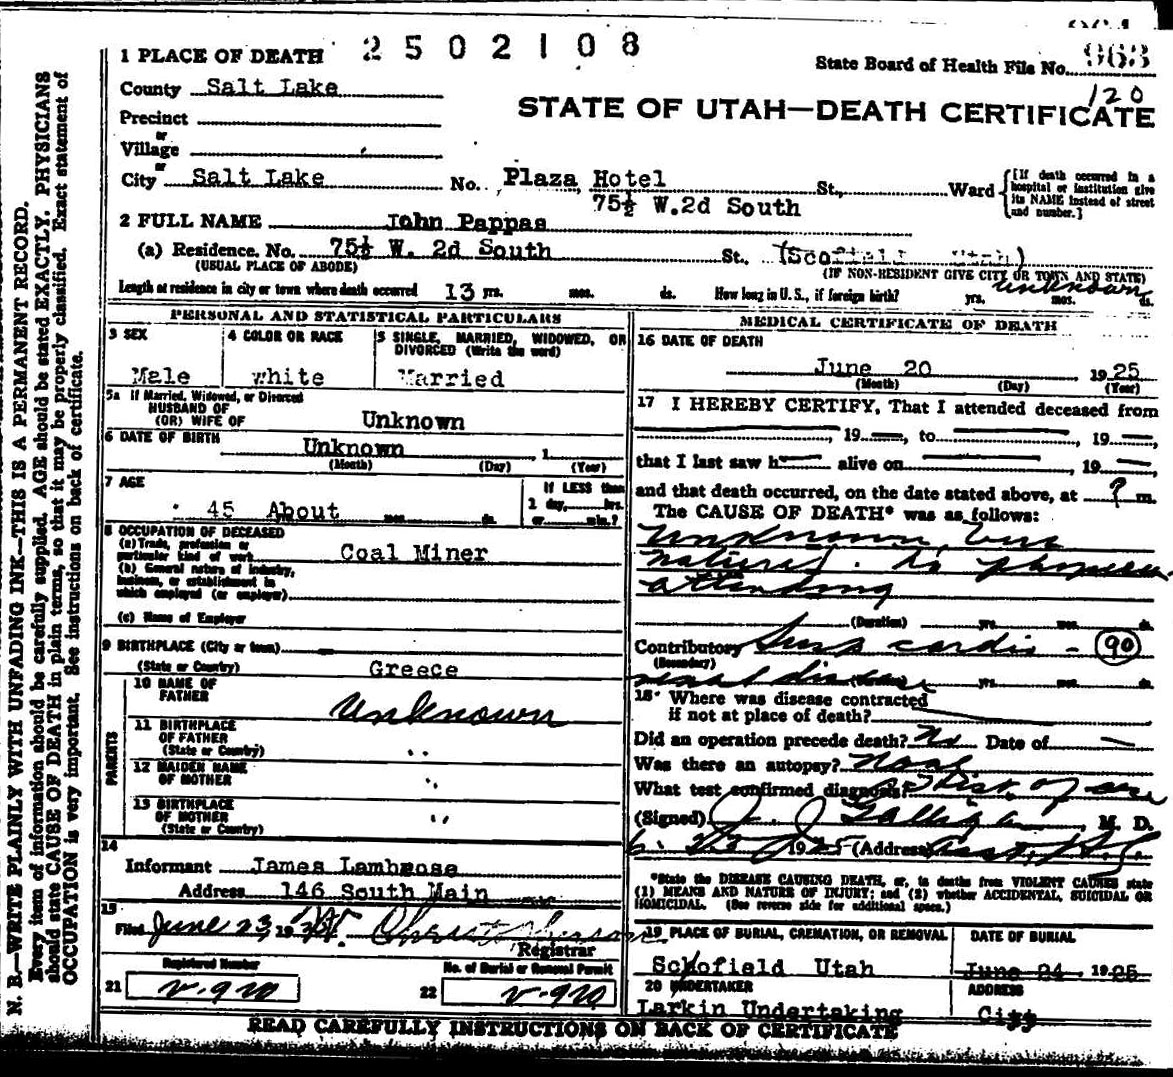 2502108
963
State Board of Health File No.
120
1 PLACE OF DEATH
County Salt Lake
STATE OF UTAH—DEATH CERTIFICATE
Precinct
or
Village
or
City Salt Lake No. Plaza Hotel St., Ward
[If death occurred in a hospital or institution give its NAME instead of street and number.]
75½ W.2d South
2 FULL NAME John Pappas
(a) Residence. No. 75½ W. 2d South St., (Scofield Utah)
(USUAL PLACE OF ABODE) (IF NON-RESIDENT GIVE CITY OR TOWN AND STATE)
Length of residence in city or town where death occurred 13 yrs. mos. ds. How long in U. S., if foreign birth? yrs. unknown mos. ds.
PERSONAL AND STATISTICAL PARTICULARS
3 SEX 4 COLOR OR RACE 5 SINGLE, MARRIED, WIDOWED, OR DIVORCED (Write the word)
Male white Married
5a If Married, Widowed, or Divorced
HUSBAND OF
(OR) WIFE OF Unknown
6 DATE OF BIRTH Unknown 1
(Month) (Day) (Year)
7 AGE If LESS than
45 About mos. ds. 1 day, hrs.
or min.?
8 OCCUPATION OF DECEASED
(a) Trade, profession or
particular kind of work Coal Miner
(b) General nature of industry,
business, or establishment in
which employed (or employer)
(c) Name of Employer
9 BIRTHPLACE (City or town)
(State or Country) Greece
PARENTS
10 NAME OF
FATHER Unknown
11 BIRTHPLACE
OF FATHER
(State or Country) "
12 MAIDEN NAME
OF MOTHER "
13 BIRTHPLACE
OF MOTHER
(State or Country) "
14
Informant James Lambrose
Address 146 South Main
15
Filed June 23, 1925
Registrar
Registered Number No. of Burial or Removal Permit
21 V-920 22 V-920
MEDICAL CERTIFICATE OF DEATH
16 DATE OF DEATH
June 20 1925
(Month) (Day) (Year)
17 I HEREBY CERTIFY, That I attended deceased from
, 19 , to , 19 ,
that I last saw h alive on , 19
and that death occurred, on the date stated above, at ? m.
The CAUSE OF DEATH* was as follows:
Unknown, but
natural. no physician
attending
(Duration) yrs. mos. ds.
Contributory cardio - 90
(Secondary)
renal disease yrs. mos. ds.
18 Where was disease contracted
if not at place of death?
Did an operation precede death? No Date of —
Was there an autopsy? None
What test confirmed diagnosis? Hist. of case
(Signed) J. J. Galligan M. D.
6. 23 1925 (Address)
*State the DISEASE CAUSING DEATH, or, in deaths from VIOLENT CAUSES state
(1) MEANS AND NATURE OF INJURY; and (2) whether ACCIDENTAL, SUICIDAL OR
HOMICIDAL. (See reverse side for additional space.)
19 PLACE OF BURIAL, CREMATION, OR REMOVAL DATE OF BURIAL
Schofield Utah June 24 1925
20 UNDERTAKER ADDRESS
Larkin Undertaking City
READ CAREFULLY INSTRUCTIONS ON BACK OF CERTIFICATE
N. B.—WRITE PLAINLY WITH UNFADING INK—THIS IS A PERMANENT RECORD.
Every item of information should be carefully supplied. AGE should be stated EXACTLY. PHYSICIANS
should state CAUSE OF DEATH in plain terms, so that it may be properly classified. Exact statement of
OCCUPATION is very important. See instructions on back of certificate.